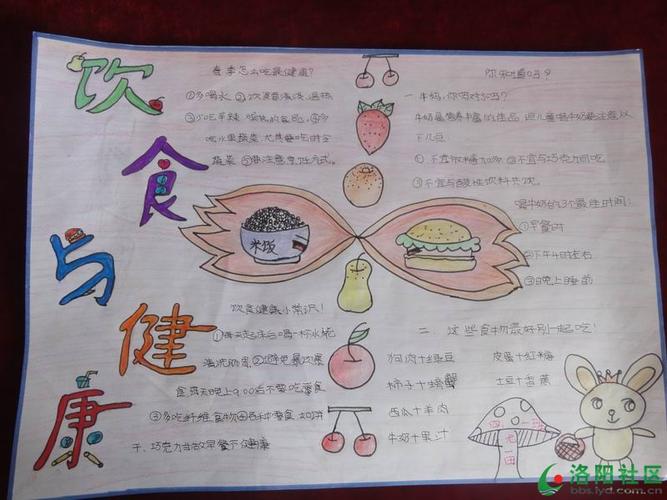 饮食与健康
春季怎么吃最健康?
①多喝水 ②饮食清淡、温热
③少吃辛辣
吃水果蔬菜
蔬菜
米饭
饮食健康小常识!
①每天起床后喝一杯水
清洗肠胃 ②避免暴饮暴
食 每天晚上9:00后不要吃零食
③多吃纤维食物
干、巧克力当做早餐不健康
你知道吗?
一、牛奶,你喝对了吗?
牛奶是营养丰富的佳品,但儿童喝牛奶要注意以
下几点
①不宜 ②不宜与巧克力同吃
③不宜与酸性饮料共饮。
喝牛奶的3个最佳时间:
①早餐时
②下午4点左右
③晚上睡前
二、这些食物最好别一起吃!
狗肉+绿豆 皮蛋+红糖
柿子+螃蟹 土豆+香蕉
西瓜+羊肉
牛奶+果汁
四一班
洛阳社区
bbs.lyd.com.cn